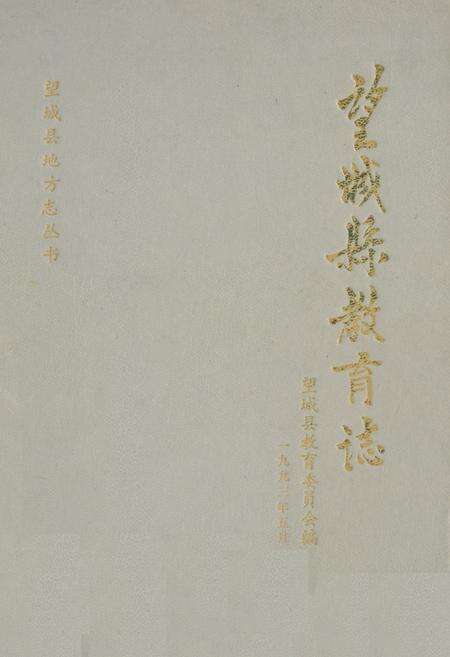 望城縣教育誌
望城县教育委员会编
一九九二年五月
望城县地方志丛书